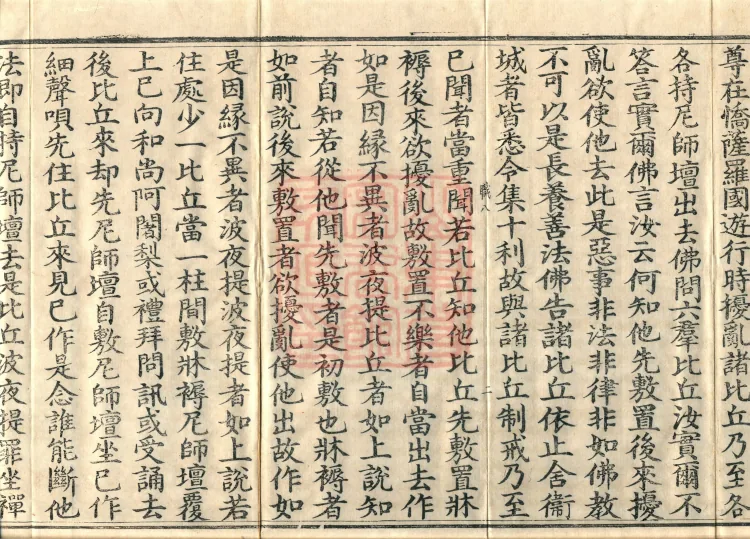 尊在憍薩羅國遊行時擾亂諸比丘乃至各
各持尼師壇出去佛問六羣比丘汝實爾不
答言實爾佛言汝云何知他先敷置後來擾
亂欲使他去此是惡事非法非律非如佛教
不可以是長養善法佛告諸比丘依止舍衞
城者皆悉令集十利故與諸比丘制戒乃至
職八
二
已聞者當重聞若比丘知他比丘先敷置牀
褥後來欲擾亂故敷置不樂者自當出去作
如是因緣不異者波夜提比丘者如上說知
者自知若從他聞先敷者是初敷也牀褥者
如前說後來敷置者欲擾亂使他出故作如
是因緣不異者波夜提波夜提者如上說若
住處少一比丘當一柱間敷牀褥尼師壇覆
上已向和尚阿闍梨或禮拜問訊或受誦去
後比丘來却先尼師壇自敷尼師壇坐已作
細聲唄先住比丘來見已作是念誰能斷他
法即自持尼師壇去是比丘波夜提罪坐禪